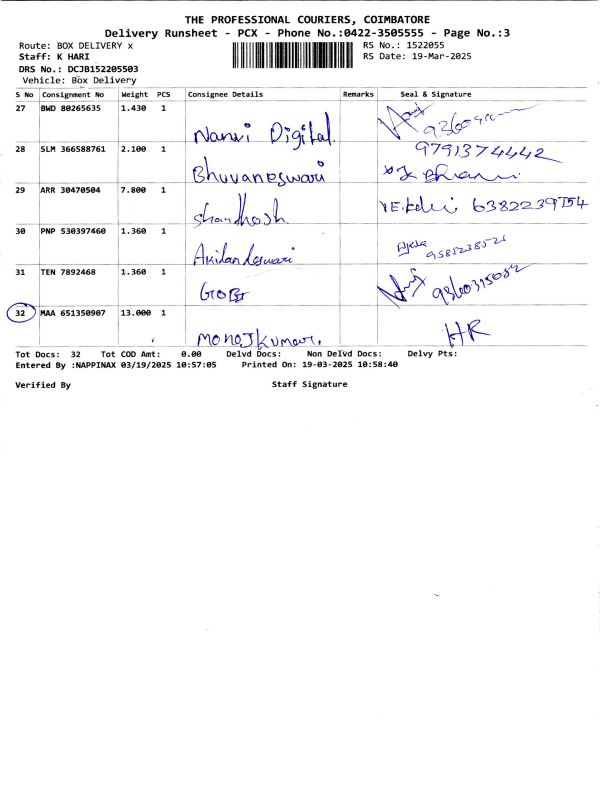 THE PROFESSIONAL COURIERS, COIMBATORE
Delivery Runsheet - PCX - Phone No.:0422-3505555 - Page No.:3
Route: BOX DELIVERY x
RS No.: 1522055
Staff: K HARI
RS Date: 19-Mar-2025
DRS No.: DCJB152205503
Vehicle: Box Delivery
S No Consignment No Weight PCS Consignee Details Remarks Seal & Signature
27 BWD 80265635 1.430 1
Digital
28 SLM 366588761 2.100 1 9791374442
Bhuvaneswari
29 ARR 30470504 7.800 1
Shandhosh 6382239754
30 PNP 530397460 1.360 1
Akilandeswari
31 TEN 7892468 1.360 1
32 MAA 651350907 13.000 1
HR
Monojkumar.
Tot Docs: 32 Tot COD Amt: 0.00 Delvd Docs: Non Delvd Docs: Delvy Pts:
Entered By :NAPPINAX 03/19/2025 10:57:05 Printed On: 19-03-2025 10:58:40
Verified By Staff Signature